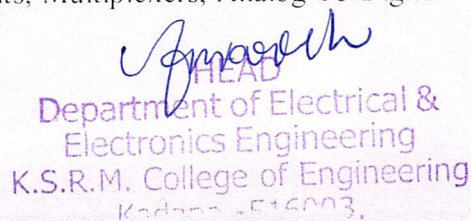 Multiplexers, Analog to Digital
HEAD
Department of Electrical &
Electronics Engineering
K.S.R.M. College of Engineering
Kadapa -516003.